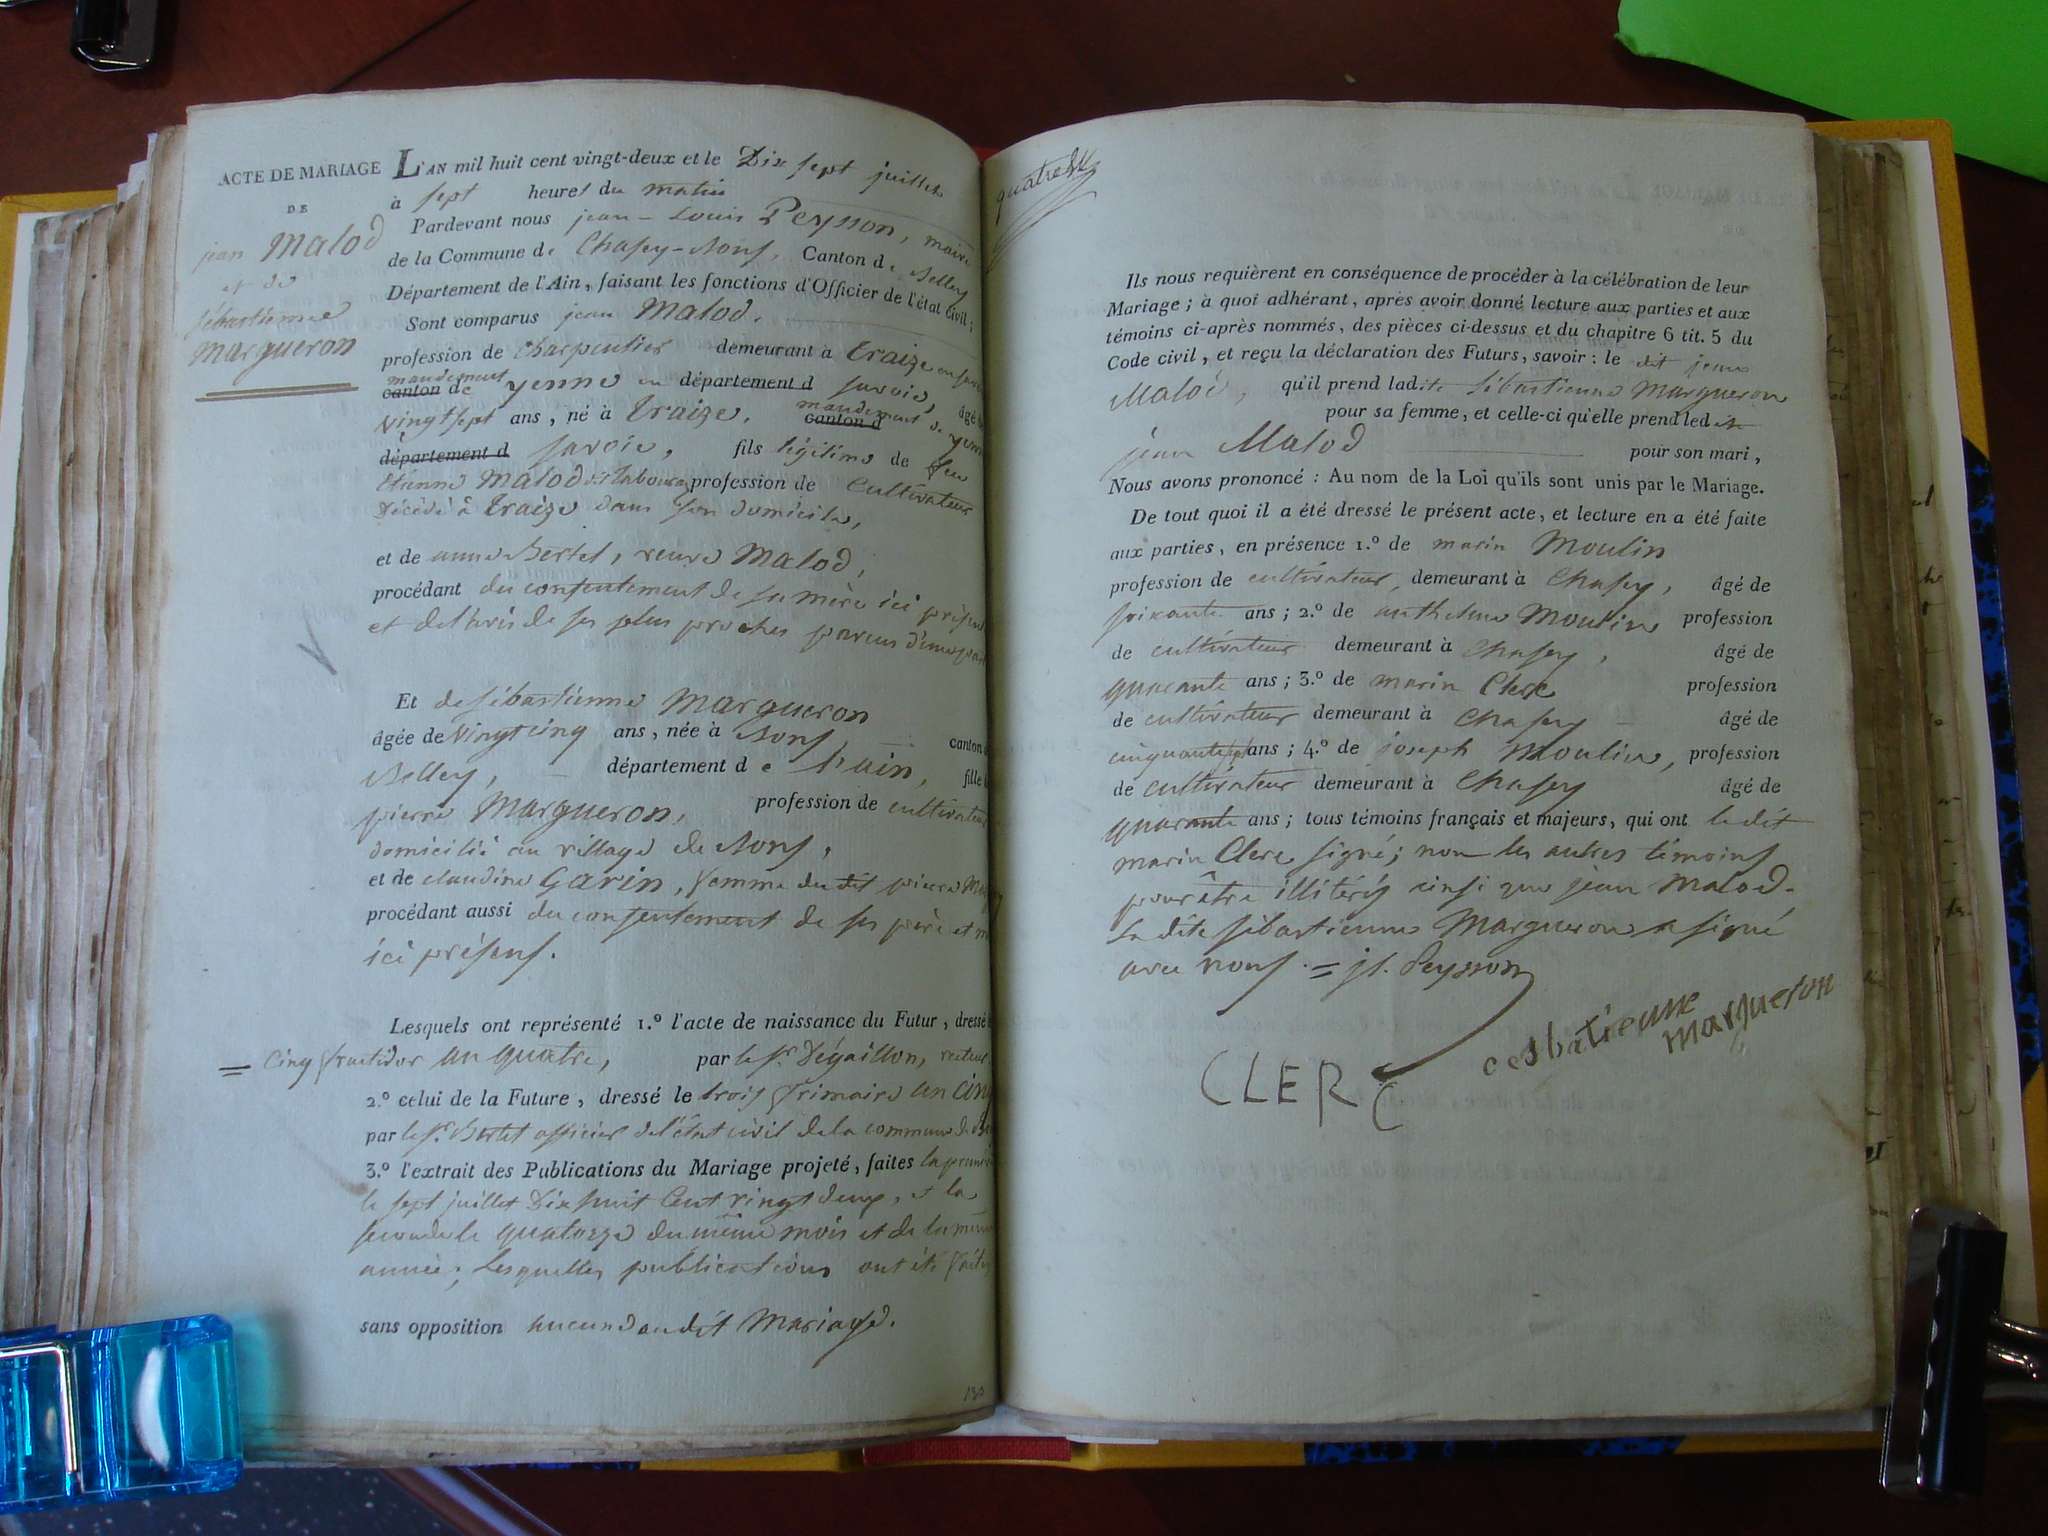 ACTE DE MARIAGE
DE
jean Malod
et de
sébastienne
margueron
L'AN mil huit cent vingt-deux et le Dix sept juillet
à sept heures du matin
Pardevant nous jean-Louis Peysson, maire
de la Commune de Chasey-Bons, Canton de Belley
Département de l'Ain, faisant les fonctions d'Officier de l'état civil;
Sont comparus jean Malod.
profession de Charpentier demeurant à traize en savoie
mandement
canton de yenne en département d savoie, âgé de
mandement
vingt sept ans, né à traize, canton d de yenne
département d savoie, fils légitime de feu
Etienne Malod profession de Cultivateur
décédé à traize dans son domicile,
et de anne Bertet, veuve Malod,
procédant du consentement de sa mère ici présente
et de l'avis de ses plus proches parens d'une part
Et de sébastienne Margueron
âgée de vingt cinq ans, née à Bons, canton
Belley, département de l'ain, fille
pierre Margueron, profession de cultivateur
domicilié au village de Bons,
et de claudine Garin, femme du dit pierre
procédant aussi du consentement de ses père et
ici présens.
Lesquels ont représenté 1.º l'acte de naissance du Futur, dressé
= Cinq fructidor an quatre, par le Sr. Dégaillon, recteur
2.º celui de la Future, dressé le trois frimaire an cinq
par le Sr. Bertet officier de l'état civil de la commune de
3.º l'extrait des Publications du Mariage projeté, faites la première
le sept juillet Dix huit Cent vingt deux, et la
seconde le quatorze du même mois et de la même
année; Lesquelles publications ont été faites
sans opposition aucune au dit Mariage.
130
Ils nous requièrent en conséquence de procéder à la célébration de leur
Mariage; à quoi adhérant, après avoir donné lecture aux parties et aux
témoins ci-après nommés, des pièces ci-dessus et du chapitre 6 tit. 5 du
Code civil, et reçu la déclaration des Futurs, savoir: le dit jean
Malod, qu'il prend ladite sébastienne Margueron
pour sa femme, et celle-ci qu'elle prend ledit
jean Malod pour son mari,
Nous avons prononcé: Au nom de la Loi qu'ils sont unis par le Mariage.
De tout quoi il a été dressé le présent acte, et lecture en a été faite
aux parties, en présence 1.º de marin Moulin
profession de cultivateur, demeurant à Chasey, âgé de
soixante ans; 2.º de anthelme Moulin profession
de cultivateur demeurant à Chasey, âgé de
quarante ans; 3.º de marin Clerc profession
de cultivateur demeurant à Chasey âgé de
cinquante sept ans; 4.º de joseph Moulin, profession
de cultivateur demeurant à Chasey âgé de
quarante ans; tous témoins français et majeurs, qui ont le dit
marin Clerc signé; non les autres témoins
pour être illitérés ainsi que jean Malod.
La dite sébastienne Margueron a signé
avec nous. = jl. Peysson
CLERC
cesbatienne
margueron